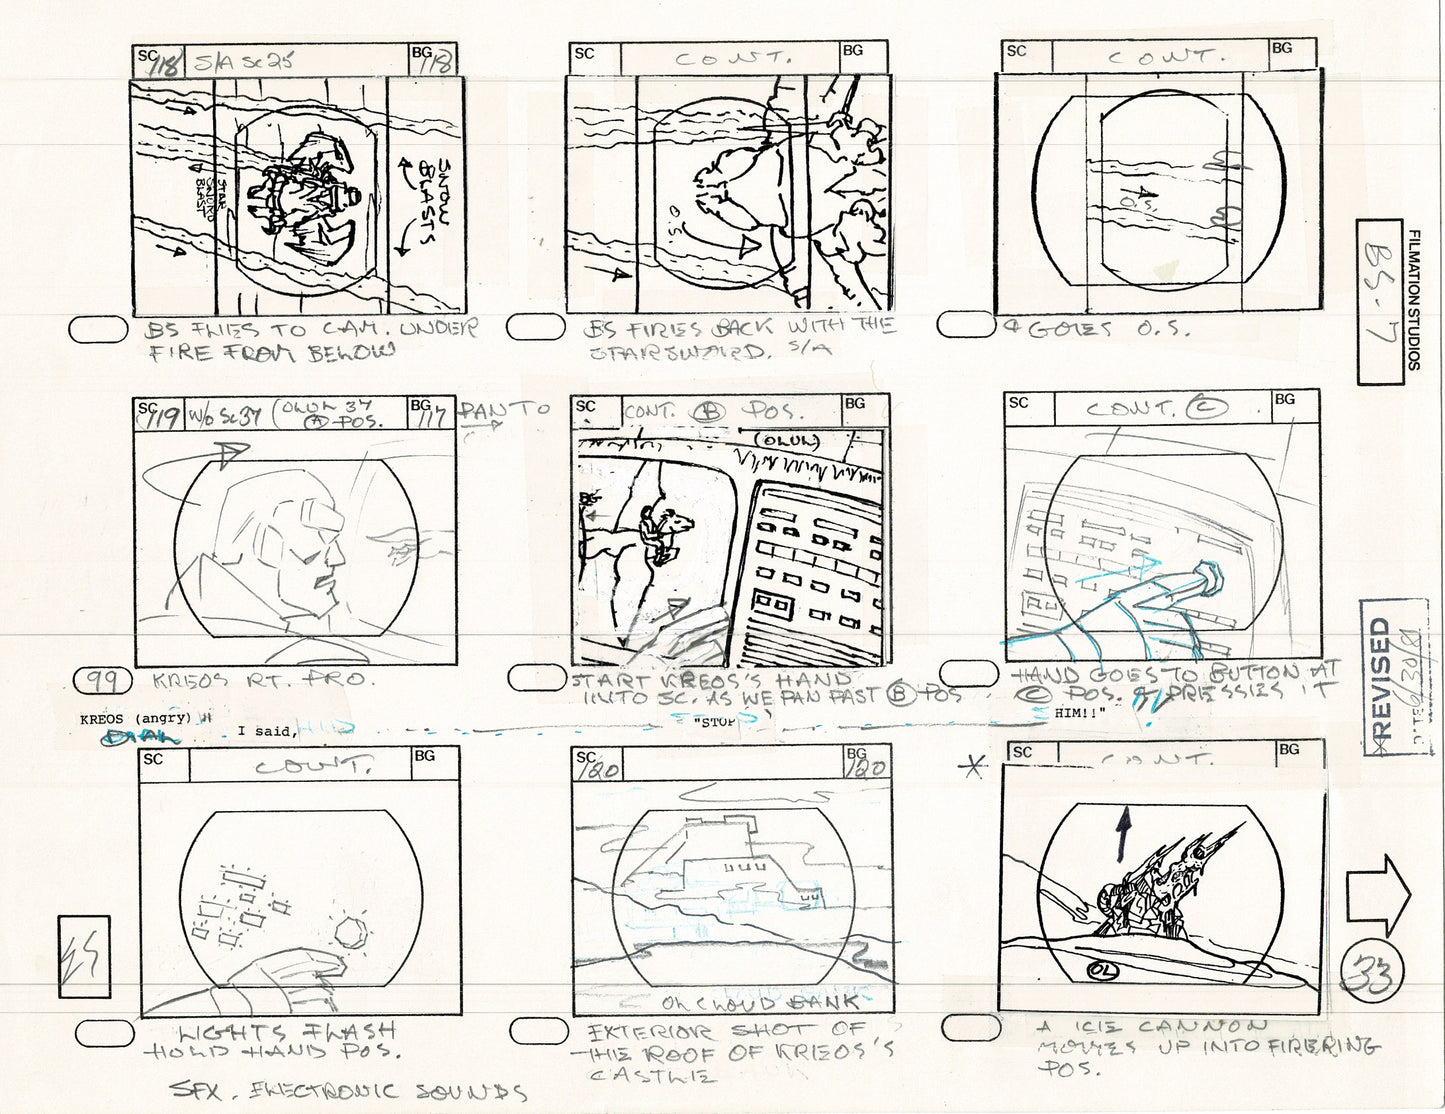 SC 118 S/A SC 25 BG 118
SNOW BLASTS
STAR SWORD BLAST
BS FLIES TO CAM. UNDER
FIRE FROM BELOW
SC CONT. BG
O.S.
BS FIRES BACK WITH THE
STARSWORD. S/A
SC CONT. BG
O.S.
& GOES O.S.
FILMATION STUDIOS
BS-7
SC 119 W/O SC 37 (OLUL 37 A POS. BG 117 PAN TO
99 KREOS RT. PRO.
SC CONT. B POS. BG
(OLUL)
BG
START KREOS'S HAND
INTO SC. AS WE PAN PAST B POS
SC CONT. C BG
HAND GOES TO BUTTON AT
C POS. & PRESSES IT
REVISED
KREOS (angry)
I said, "STOP HIM!!"
SC CONT. BG
LIGHTS FLASH
HOLD HAND POS.
SFX. ELECTRONIC SOUNDS
SC 120 BG 120
OL CLOUD BANK
EXTERIOR SHOT OF
THE ROOF OF KREOS'S
CASTLE
SC CONT. BG
OL
A ICE CANNON
MOVES UP INTO FIRERING
POS.
33